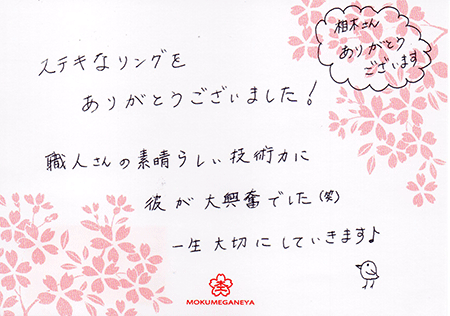 相木さん
ありがとう
ございます
ステキなリングを
ありがとうございました!
職人さんの素晴らしい技術力に
彼が大興奮でした(笑)
一生大切にしていきます♪
MOKUMEGANEYA